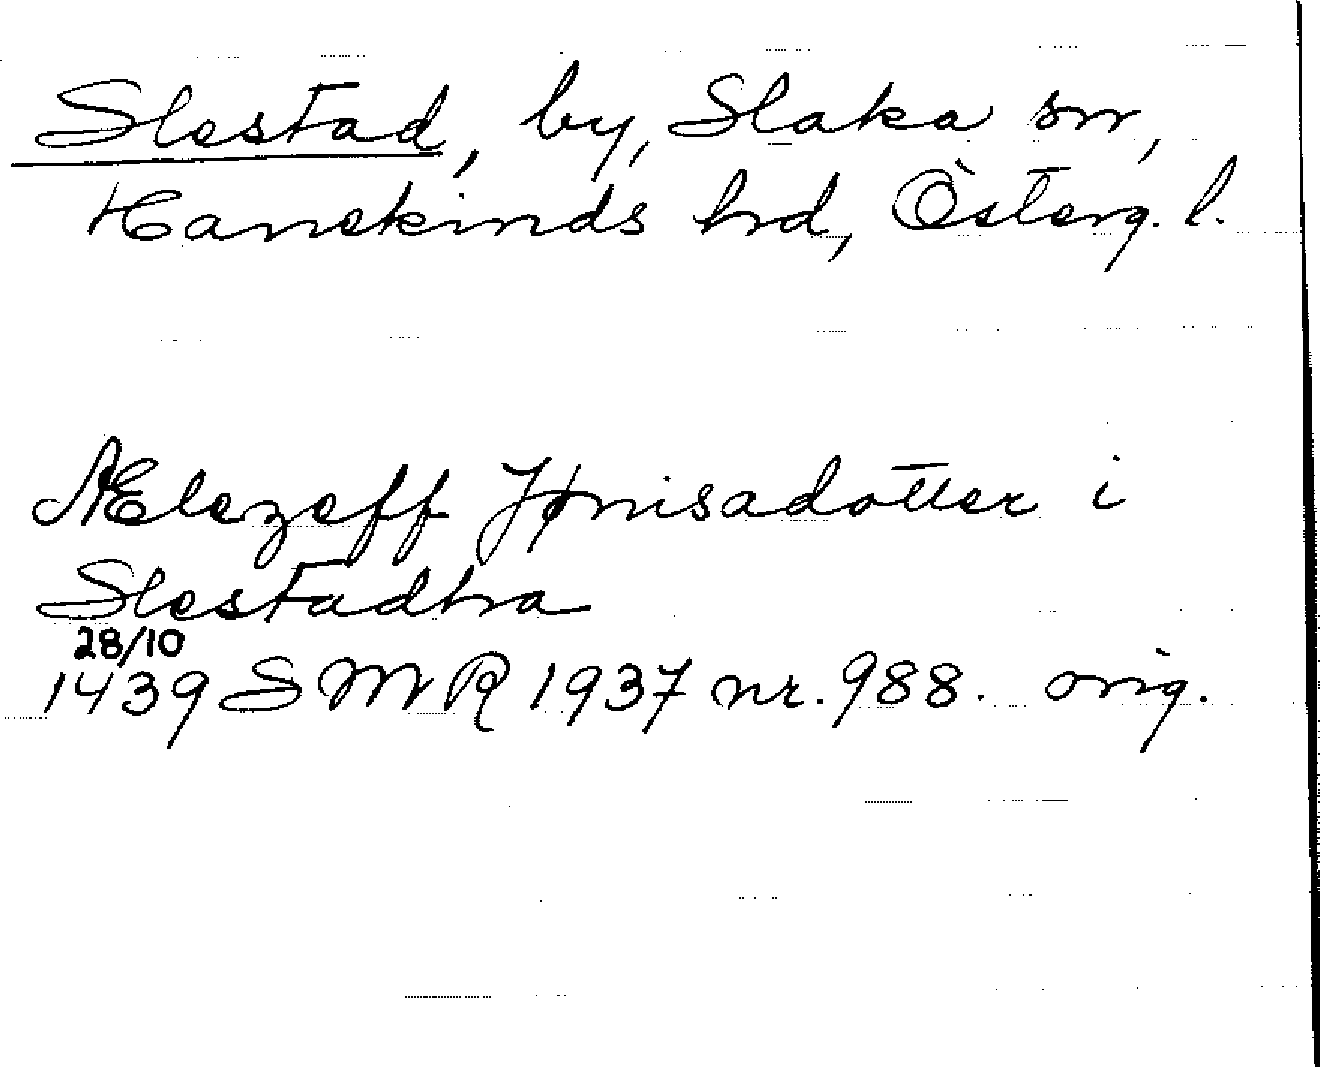 Slestad, by, Slaka sn,
Hanekinds hrd, Österg. l.
Ælezeff Jønisadotter i
Slestadha
28/10
1439 SMR 1937 nr. 988. orig.